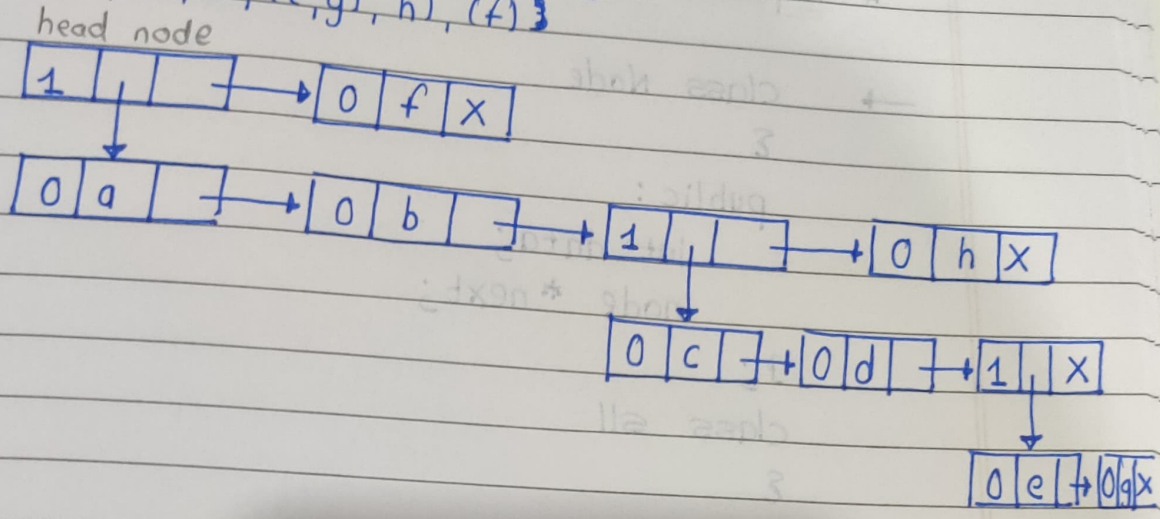 , g), h), (f)}
head node
1 0 f X
0 a 0 b 1 0 h X
0 c 0 d 1 X
0 e 0 g X